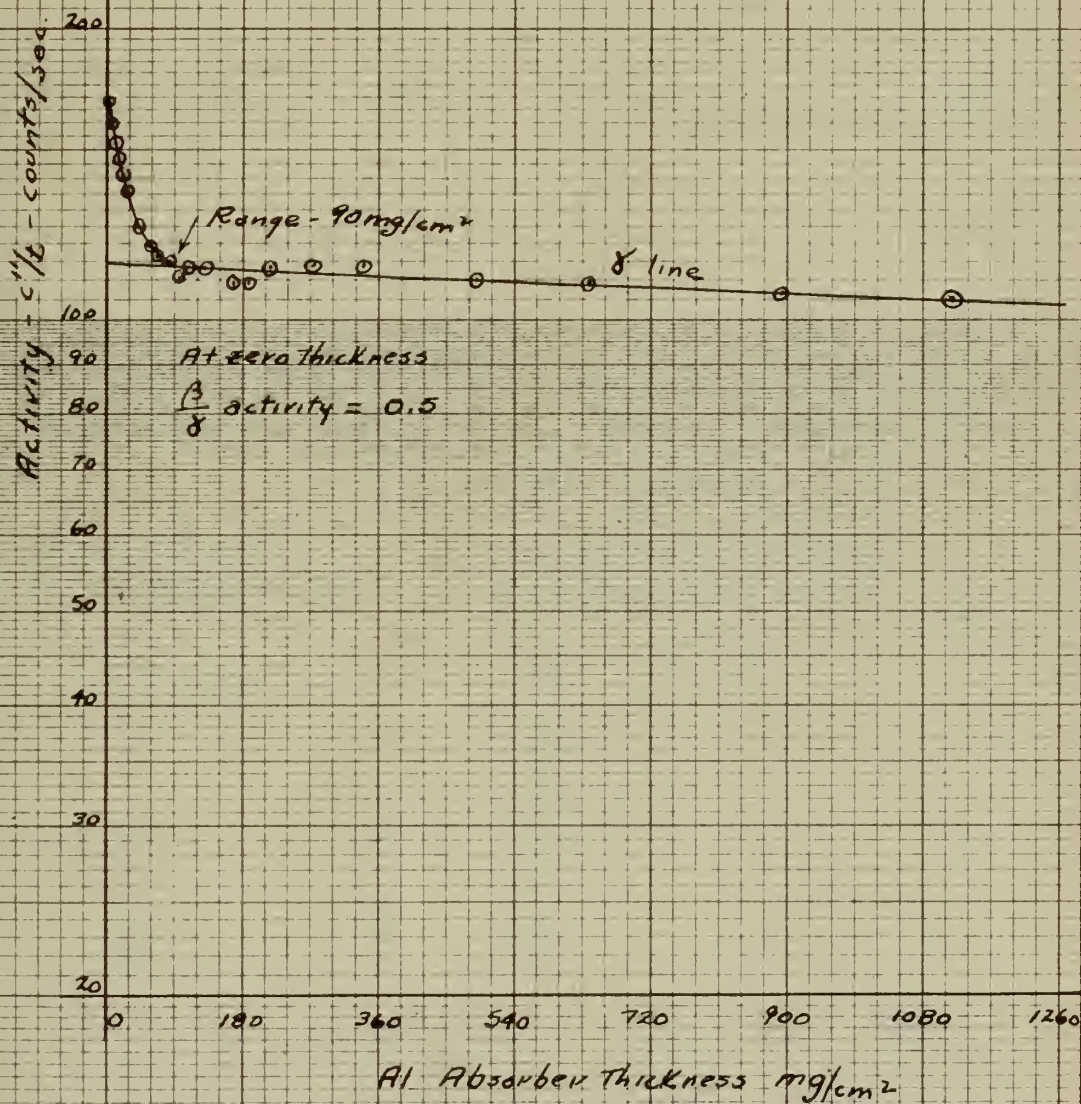 Activity - c"/t - counts/sec.
200
100
90
80
70
60
50
40
30
20
Range - 90 mg/cm²
γ line
At zero thickness
β/γ activity = 0.5
0 180 360 540 720 900 1080 1260
Al Absorber Thickness mg/cm²